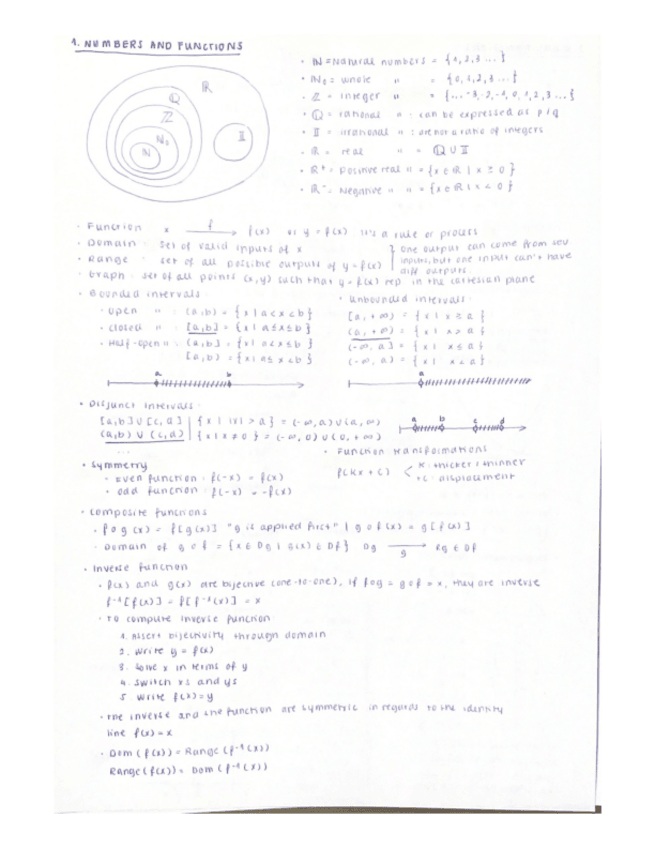 1. NUMBERS AND FUNCTIONS
ℝ
ℚ
ℤ
ℕ₀
ℕ
𝕀
· ℕ = Natural numbers = {1,2,3 ...}
· ℕ₀ = whole " = {0,1,2,3 ...}
· ℤ = integer " = {... -3,-2,-1,0,1,2,3 ...}
· ℚ = rational " : can be expressed as p/q
· 𝕀 = irrational " : are not a ratio of integers
· ℝ = real " = ℚ ∪ 𝕀
· ℝ⁺ = Positive real " = {x ∈ ℝ | x ≥ 0}
· ℝ⁻ = Negative " " = {x ∈ ℝ | x < 0}
· Function x —f→ f(x) as y = f(x) It's a rule or process
· Domain : set of valid inputs of x
· Range : set of all possible outputs of y = f(x)
} one output can come from sev
inputs, but one input can't have
diff outputs
· Graph : set of all points (x,y) such that y = f(x) rep in the cartesian plane
· Bounded intervals
· Open " : (a,b) = {x | a<x<b}
· Closed " : [a,b] = {x | a≤x≤b}
· Half-open " : (a,b] = {x | a<x≤b}
[a,b) = {x | a≤x<b}
· Unbounded intervals :
[a,+∞) = {x | x ≥ a}
(a,+∞) = {x | x > a}
(-∞,a] = {x | x ≤ a}
(-∞,a) = {x | x < a}
a b
a
· Disjunct intervals :
[a,b] ∪ [c,d] | {x | |x| > a} = (-∞,a) ∪ (a,∞)
(a,b) ∪ (c,d) | {x | x ≠ 0} = (-∞,0) ∪ (0,+∞)
...
a b c d
· Symmetry
· Even function : f(-x) = f(x)
· Odd function : f(-x) = -f(x)
· Function transformations
f(kx + c) < K: thicker / thinner
+c : displacement
· Composite functions
· f o g (x) = f[g(x)] "g is applied first" | g o f (x) = g[f(x)]
· Domain of g o f = {x ∈ Dg | g(x) ∈ Df} Dg —g→ Rg ∈ Df
· Inverse function
· f(x) and g(x) are bijective (one-to-one), if fog = gof = x, they are inverse
f⁻¹[f(x)] = f[f⁻¹(x)] = x
· To compute inverse function
1. Assert bijectivity through domain
2. Write y = f(x)
3. Solve x in terms of y
4. Switch xs and ys
5. Write f(x)=y
· The inverse and the function are symmetric in regards to the identity
line f(x) = x
· Dom (f(x)) = Range (f⁻¹(x))
Range (f(x)) = Dom (f⁻¹(x))